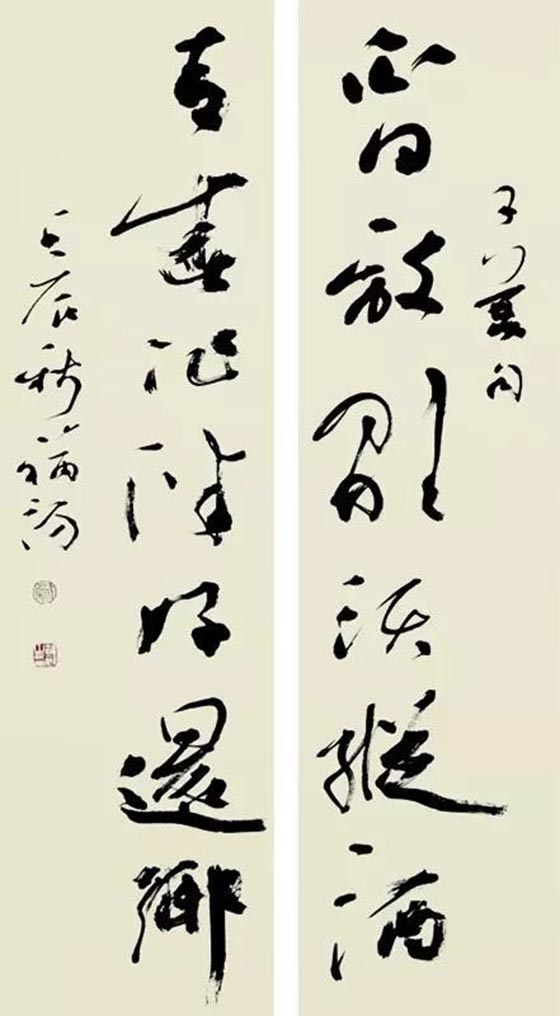 子美句
白日放歌須縱酒
青春作伴好還鄉
壬辰秋